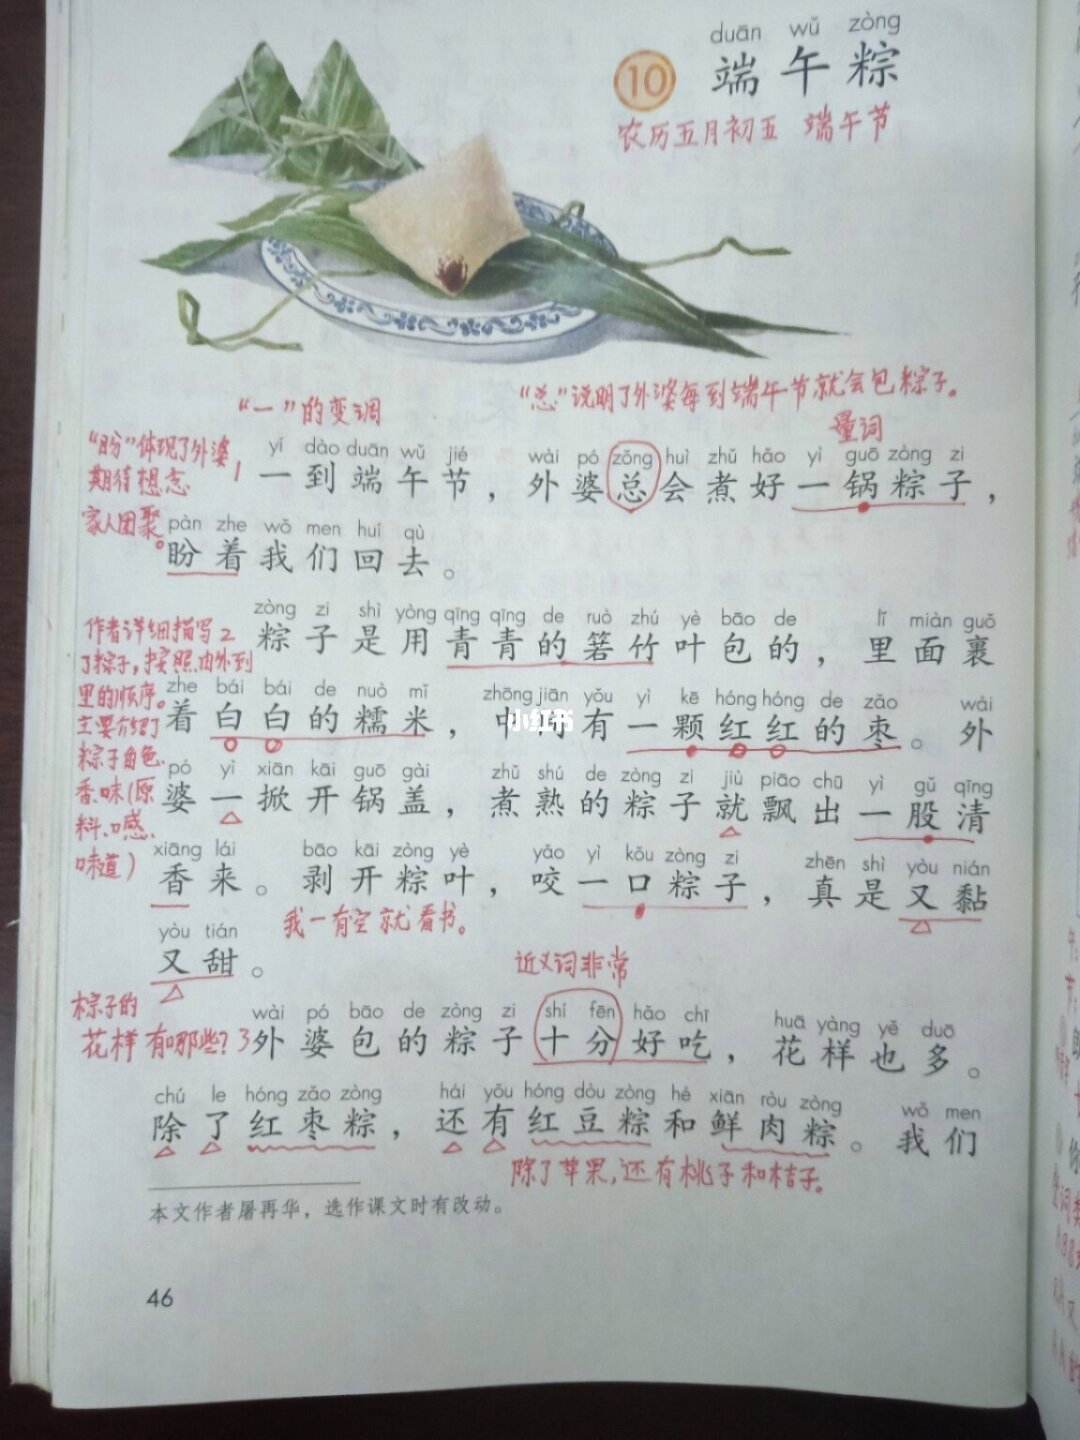 duān wǔ zòng
10 端午粽
农历五月初五 端午节
“一”的变调
“总”说明了外婆每到端午节就会包粽子。
量词
“盼”体现了外婆
期待想念
家人团聚。
yí dào duān wǔ jié wài pó zǒng huì zhǔ hǎo yì guō zòng zi
1 一到端午节，外婆总会煮好一锅粽子，
pàn zhe wǒ men huí qù
盼着我们回去。
作者详细描写
了粽子，按照由外到
里的顺序。
主要介绍了
粽子自色、
香、味（原
料、口感、
味道）
zòng zi shì yòng qīng qīng de ruò zhú yè bāo de lǐ miàn guǒ
2 粽子是用青青的箬竹叶包的，里面裹
zhe bái bái de nuò mǐ zhōng jiān yǒu yì kē hóng hóng de zǎo wài
着白白的糯米，中间有一颗红红的枣。外
小红书
pó yì xiān kāi guō gài zhǔ shú de zòng zi jiù piāo chū yì gǔ qīng
婆一掀开锅盖，煮熟的粽子就飘出一股清
xiāng lái bāo kāi zòng yè yǎo yì kǒu zòng zi zhēn shì yòu nián
香来。剥开粽叶，咬一口粽子，真是又黏
我一有空就看书。
yòu tián
又甜。
近义词非常
粽子的
花样有哪些？
wài pó bāo de zòng zi shí fēn hǎo chī huā yàng yě duō
3 外婆包的粽子十分好吃，花样也多。
chú le hóng zǎo zòng hái yǒu hóng dòu zòng hé xiān ròu zòng wǒ men
除了红枣粽，还有红豆粽和鲜肉粽。我们
除了苹果，还有桃子和桔子。
本文作者屠再华，选作课文时有改动。
46